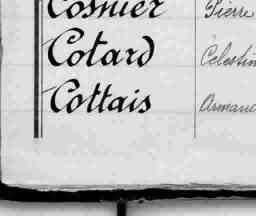 Cosnier Pierre
Cotard Celestin
Cottais Armand